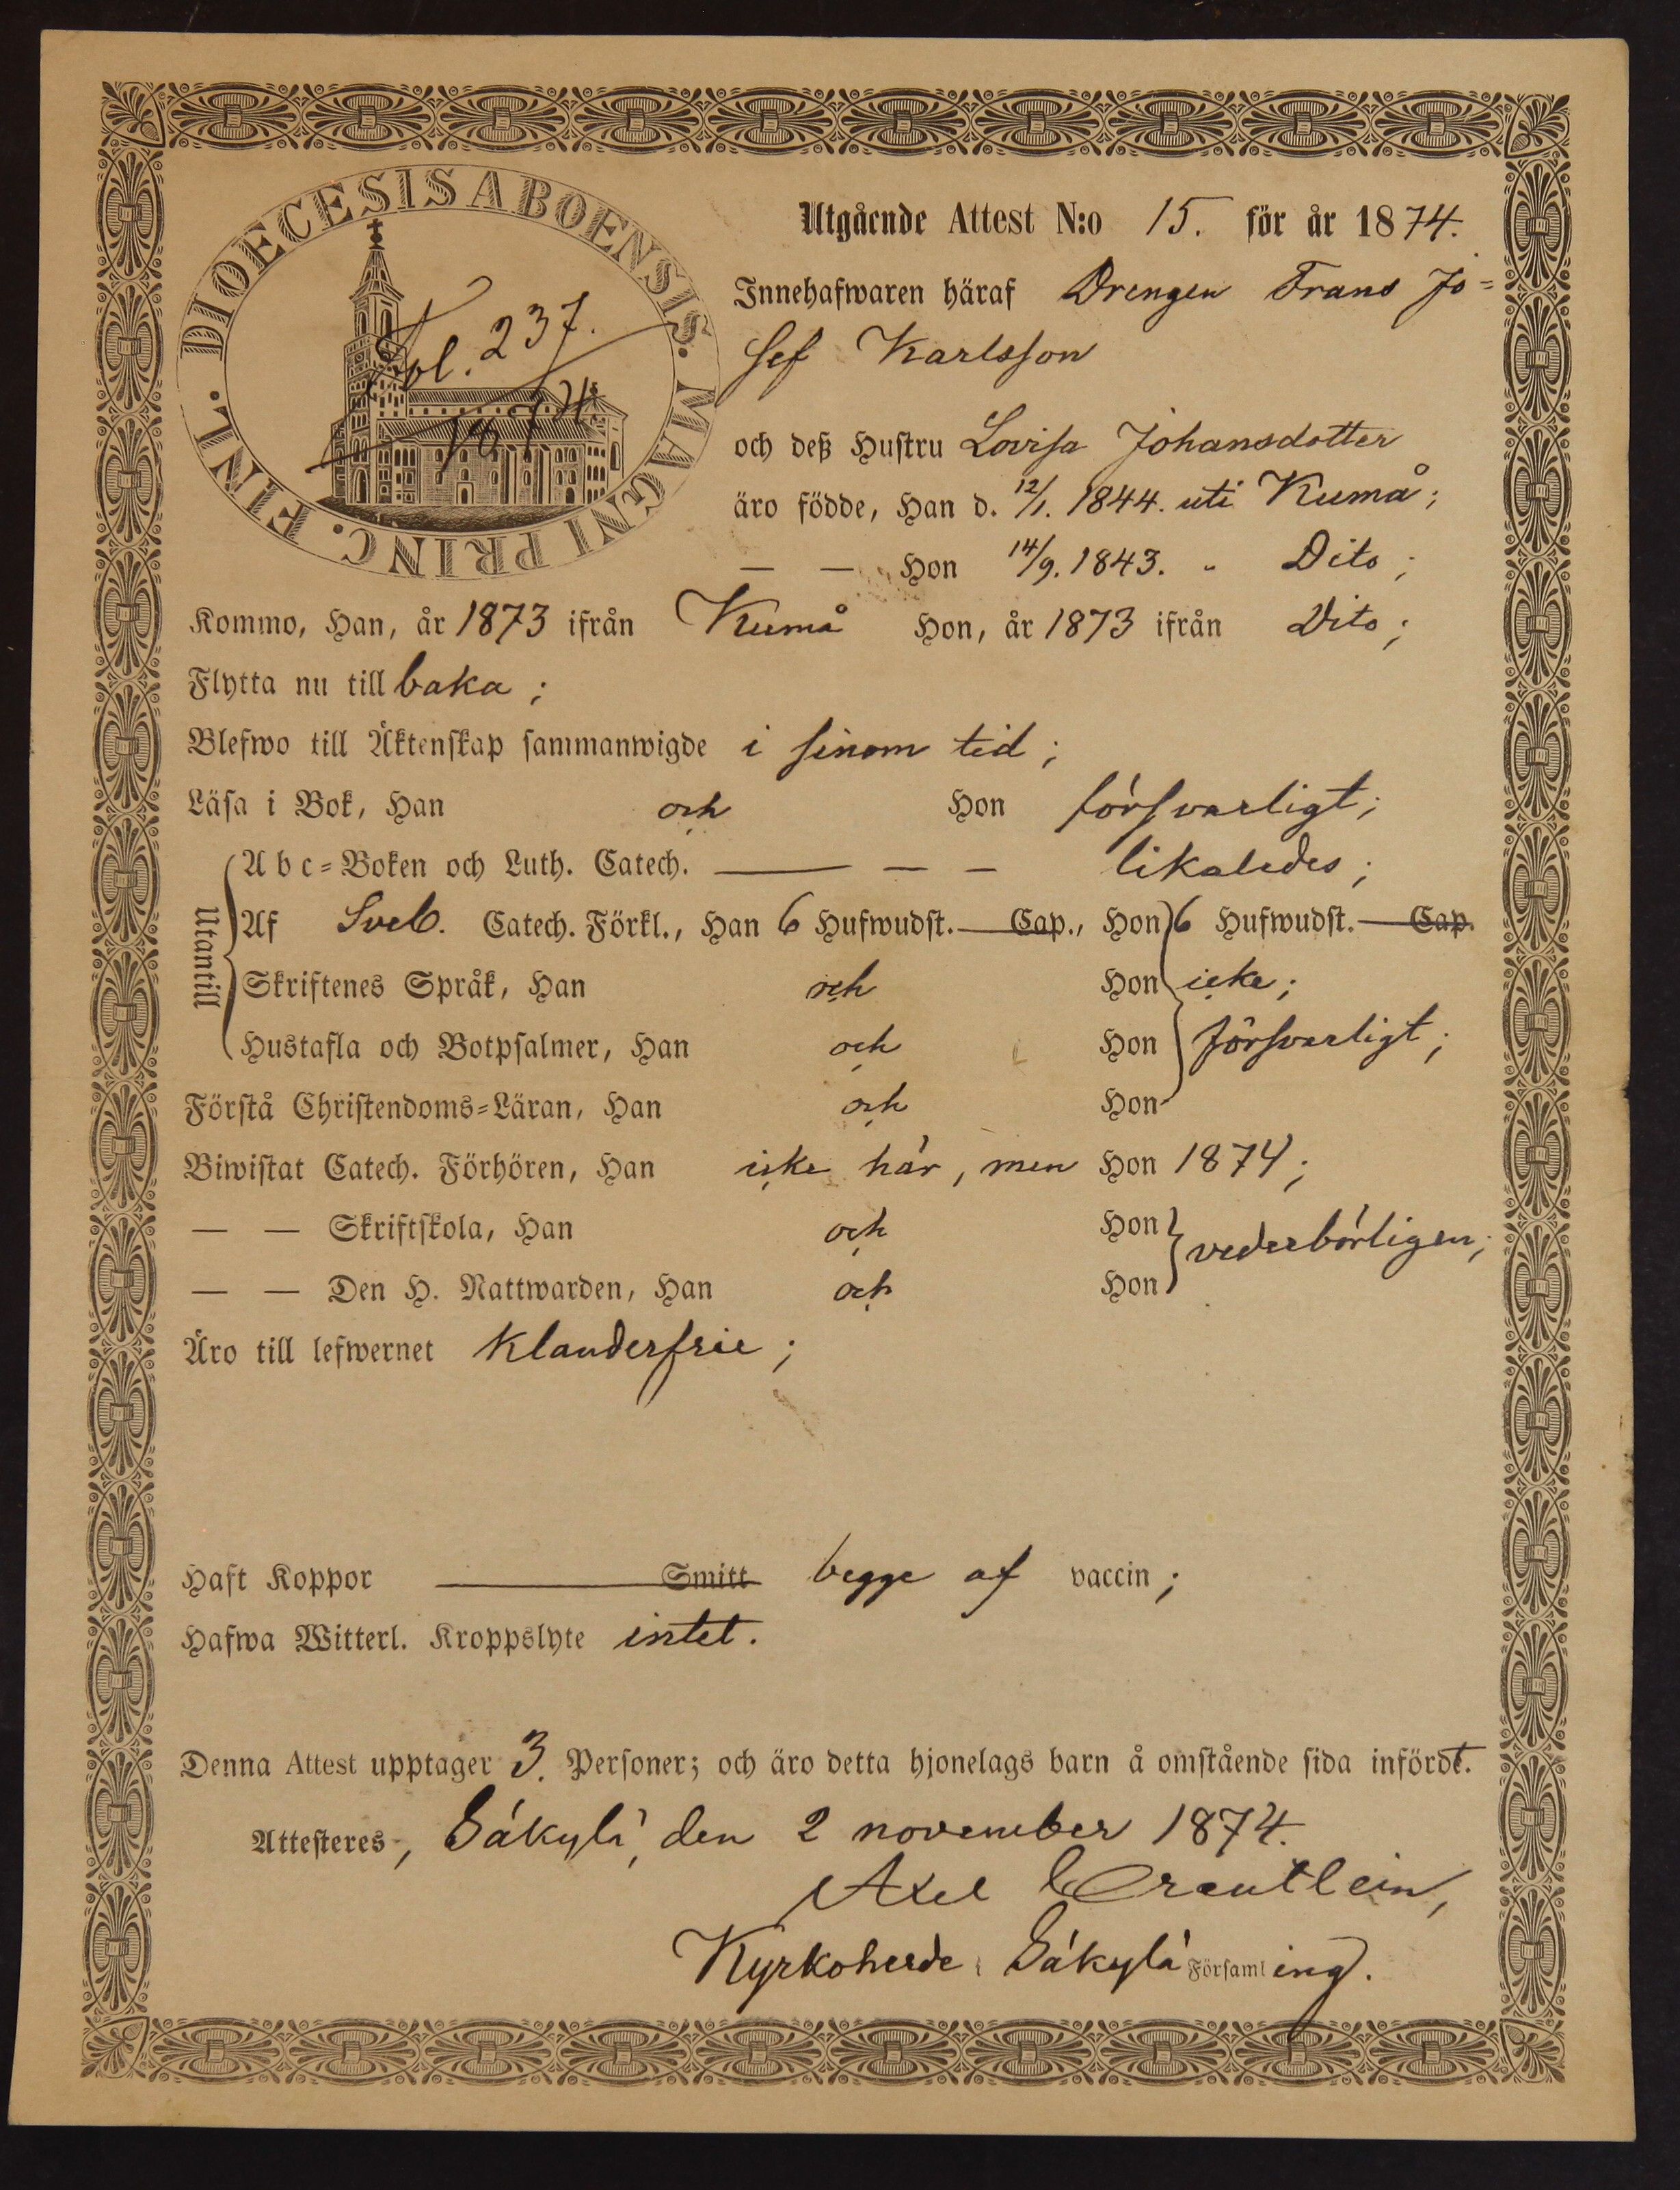 DIOECESIS ABOENSIS. MAGNI PRINC. FINL.
Fol. 237.
1874.
Utgående Attest N:o 15. för år 1874.
Innehafwaren häraf Drengen Frans Jo=
sef Karlsson
och deß Hustru Lovisa Johansdotter
äro födde, Han d. 12/1. 1844. uti Kumå;
— — Hon 14/9. 1843. " Dito;
Kommo, Han, år 1873 ifrån Kumå Hon, år 1873 ifrån Dito;
Flytta nu till baka;
Blefwo till Äktenskap sammanwigde i sinom tid;
Läsa i Bok, Han och Hon försvarligt;
Utantill
Abc=Boken och Luth. Catech. — — — likaledes;
Af Sveb. Catech. Förkl., Han 6 Hufwudst. — Cap., Hon 6 Hufwudst. — Cap.
Skriftenes Språk, Han och Hon icke;
Hustafla och Botpsalmer, Han och Hon försvarligt;
Förstå Christendoms=Läran, Han och Hon
Biwistat Catech. Förhören, Han icke här, men Hon 1874;
— — Skriftskola, Han och Hon vederbörligen;
— — Den H. Nattwarden, Han och Hon
Äro till lefwernet klanderfrie;
Haft Koppor — Smitt begge af vaccin;
Hafwa Witterl. Kroppslyte intet.
Denna Attest upptager 3. Personer; och äro detta hjonelags barn å omstående sida infördt.
Attesteres, Säkylä, den 2 november 1874.
Axel Creutlein,
Kyrkoherde i Säkylä Församling.